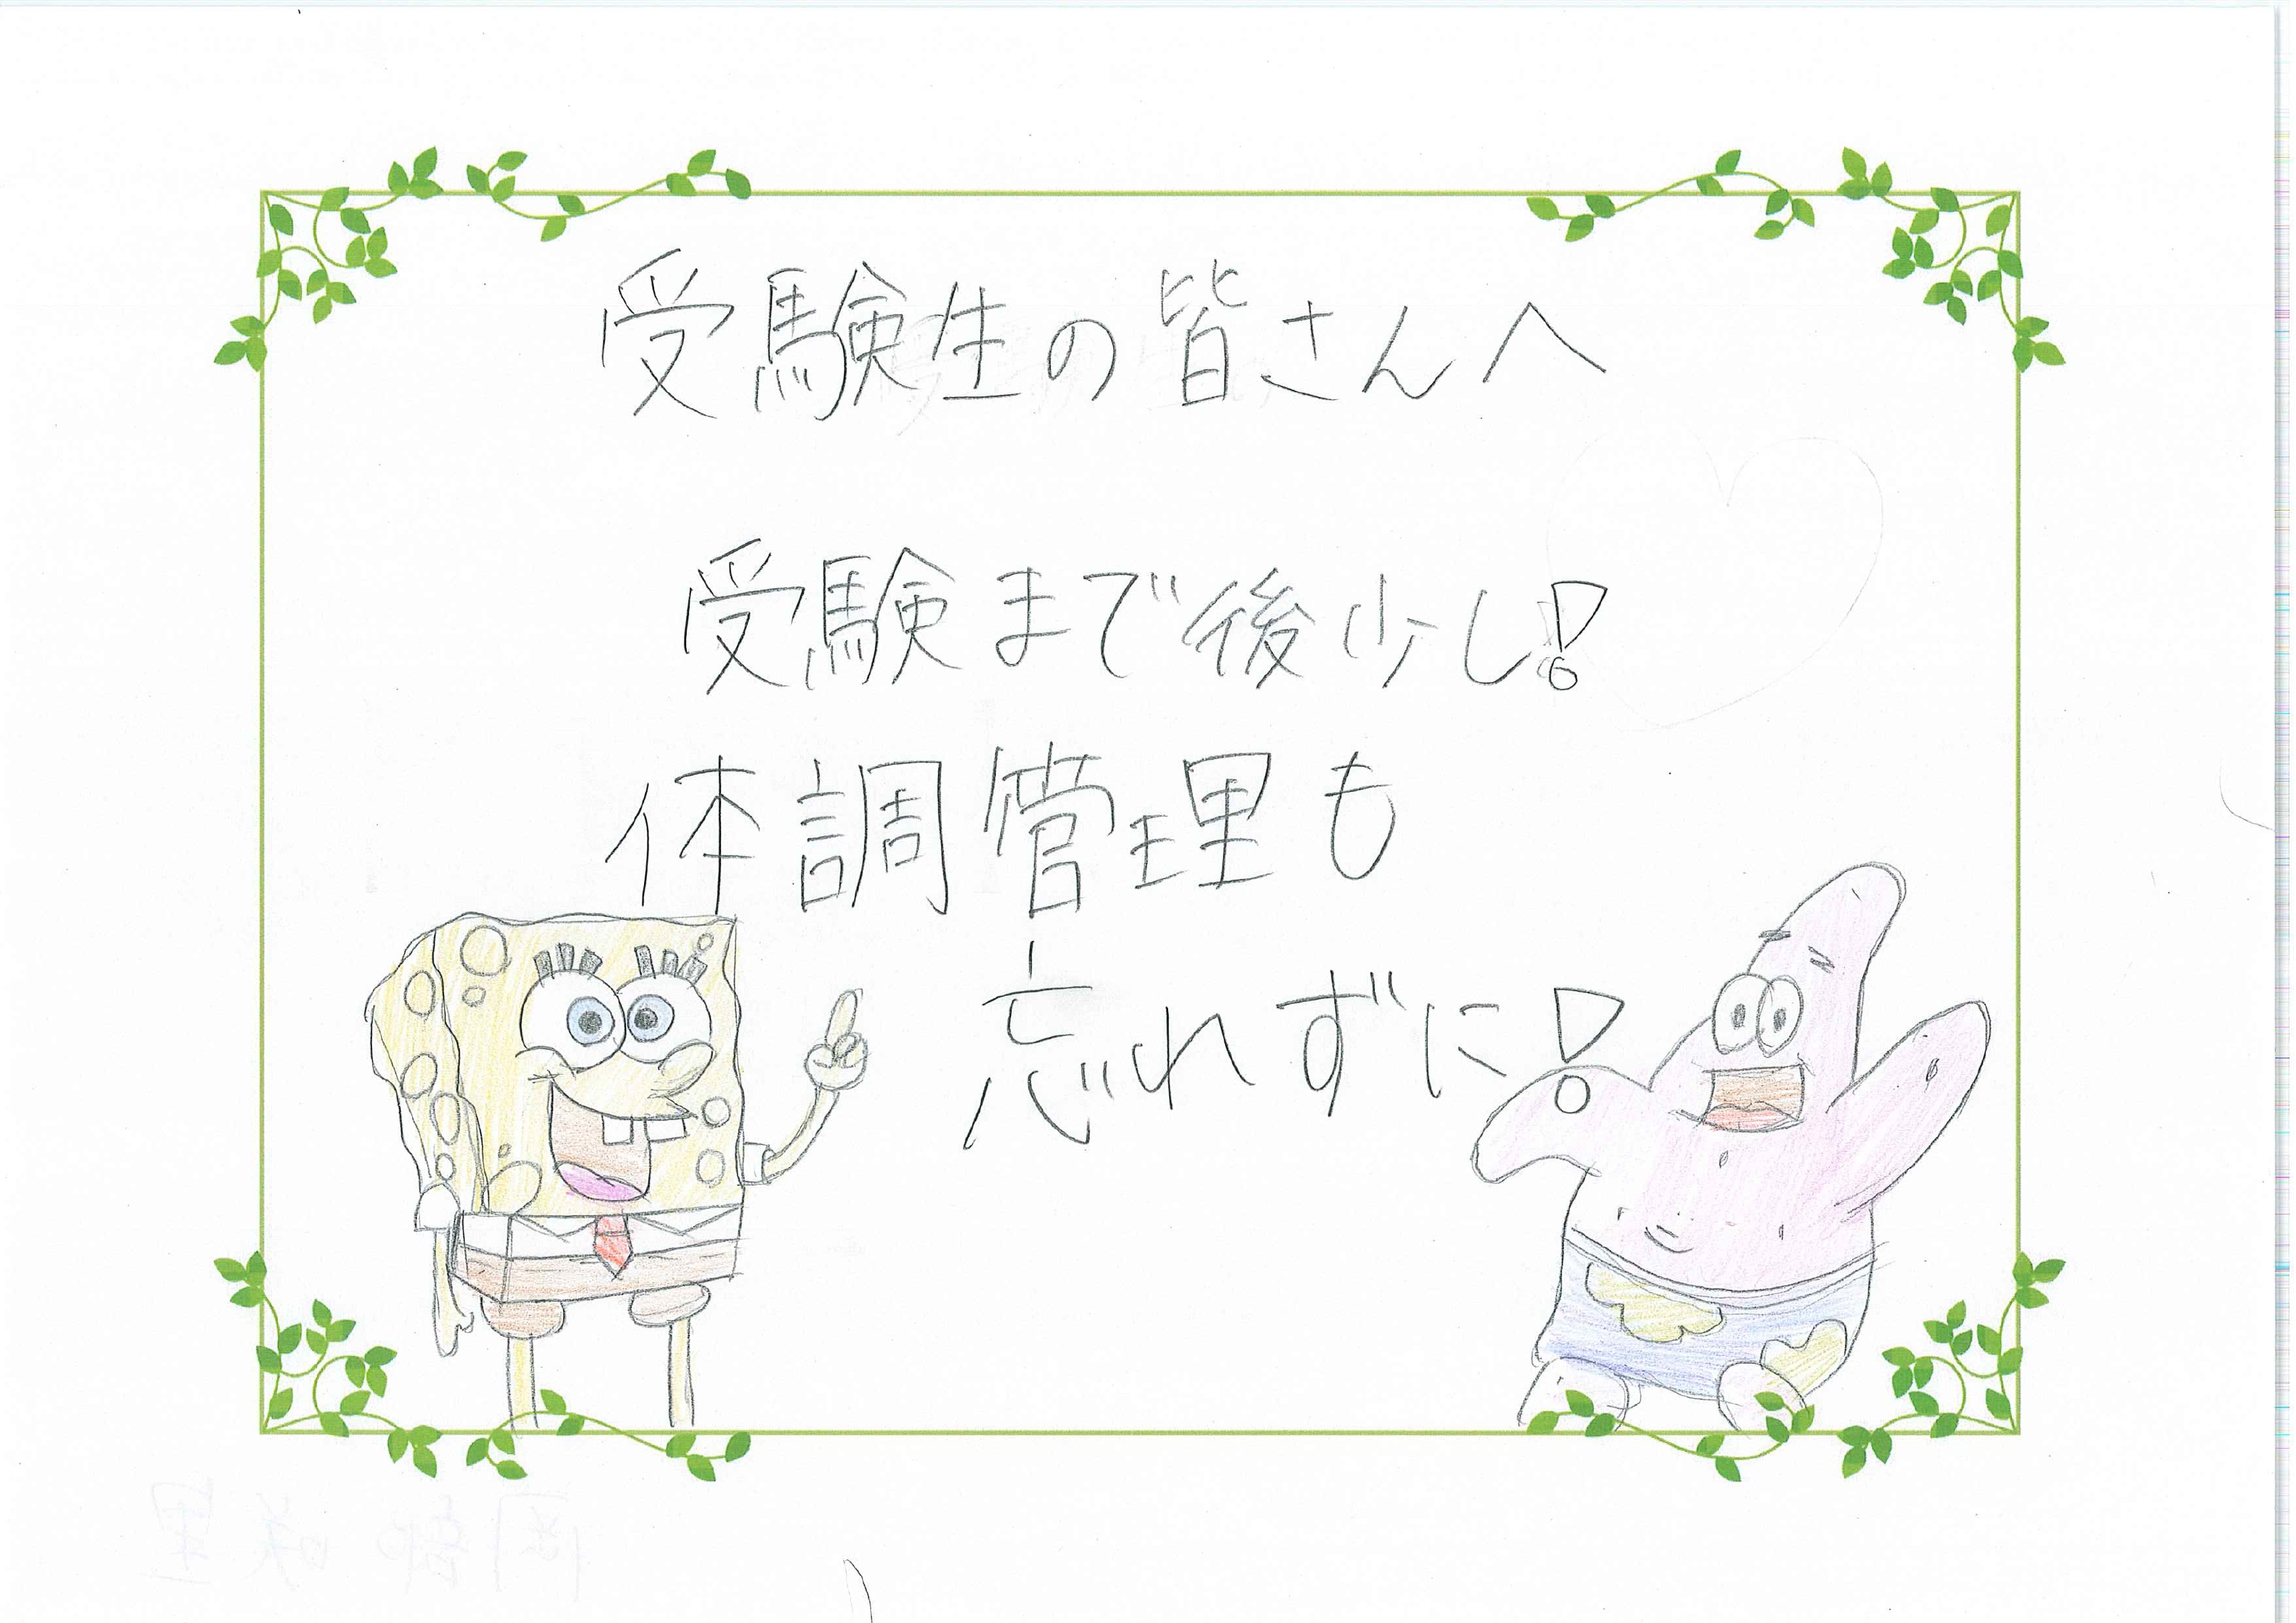 受験生の皆さんへ
受験まで後少し!
体調管理も
忘れずに!